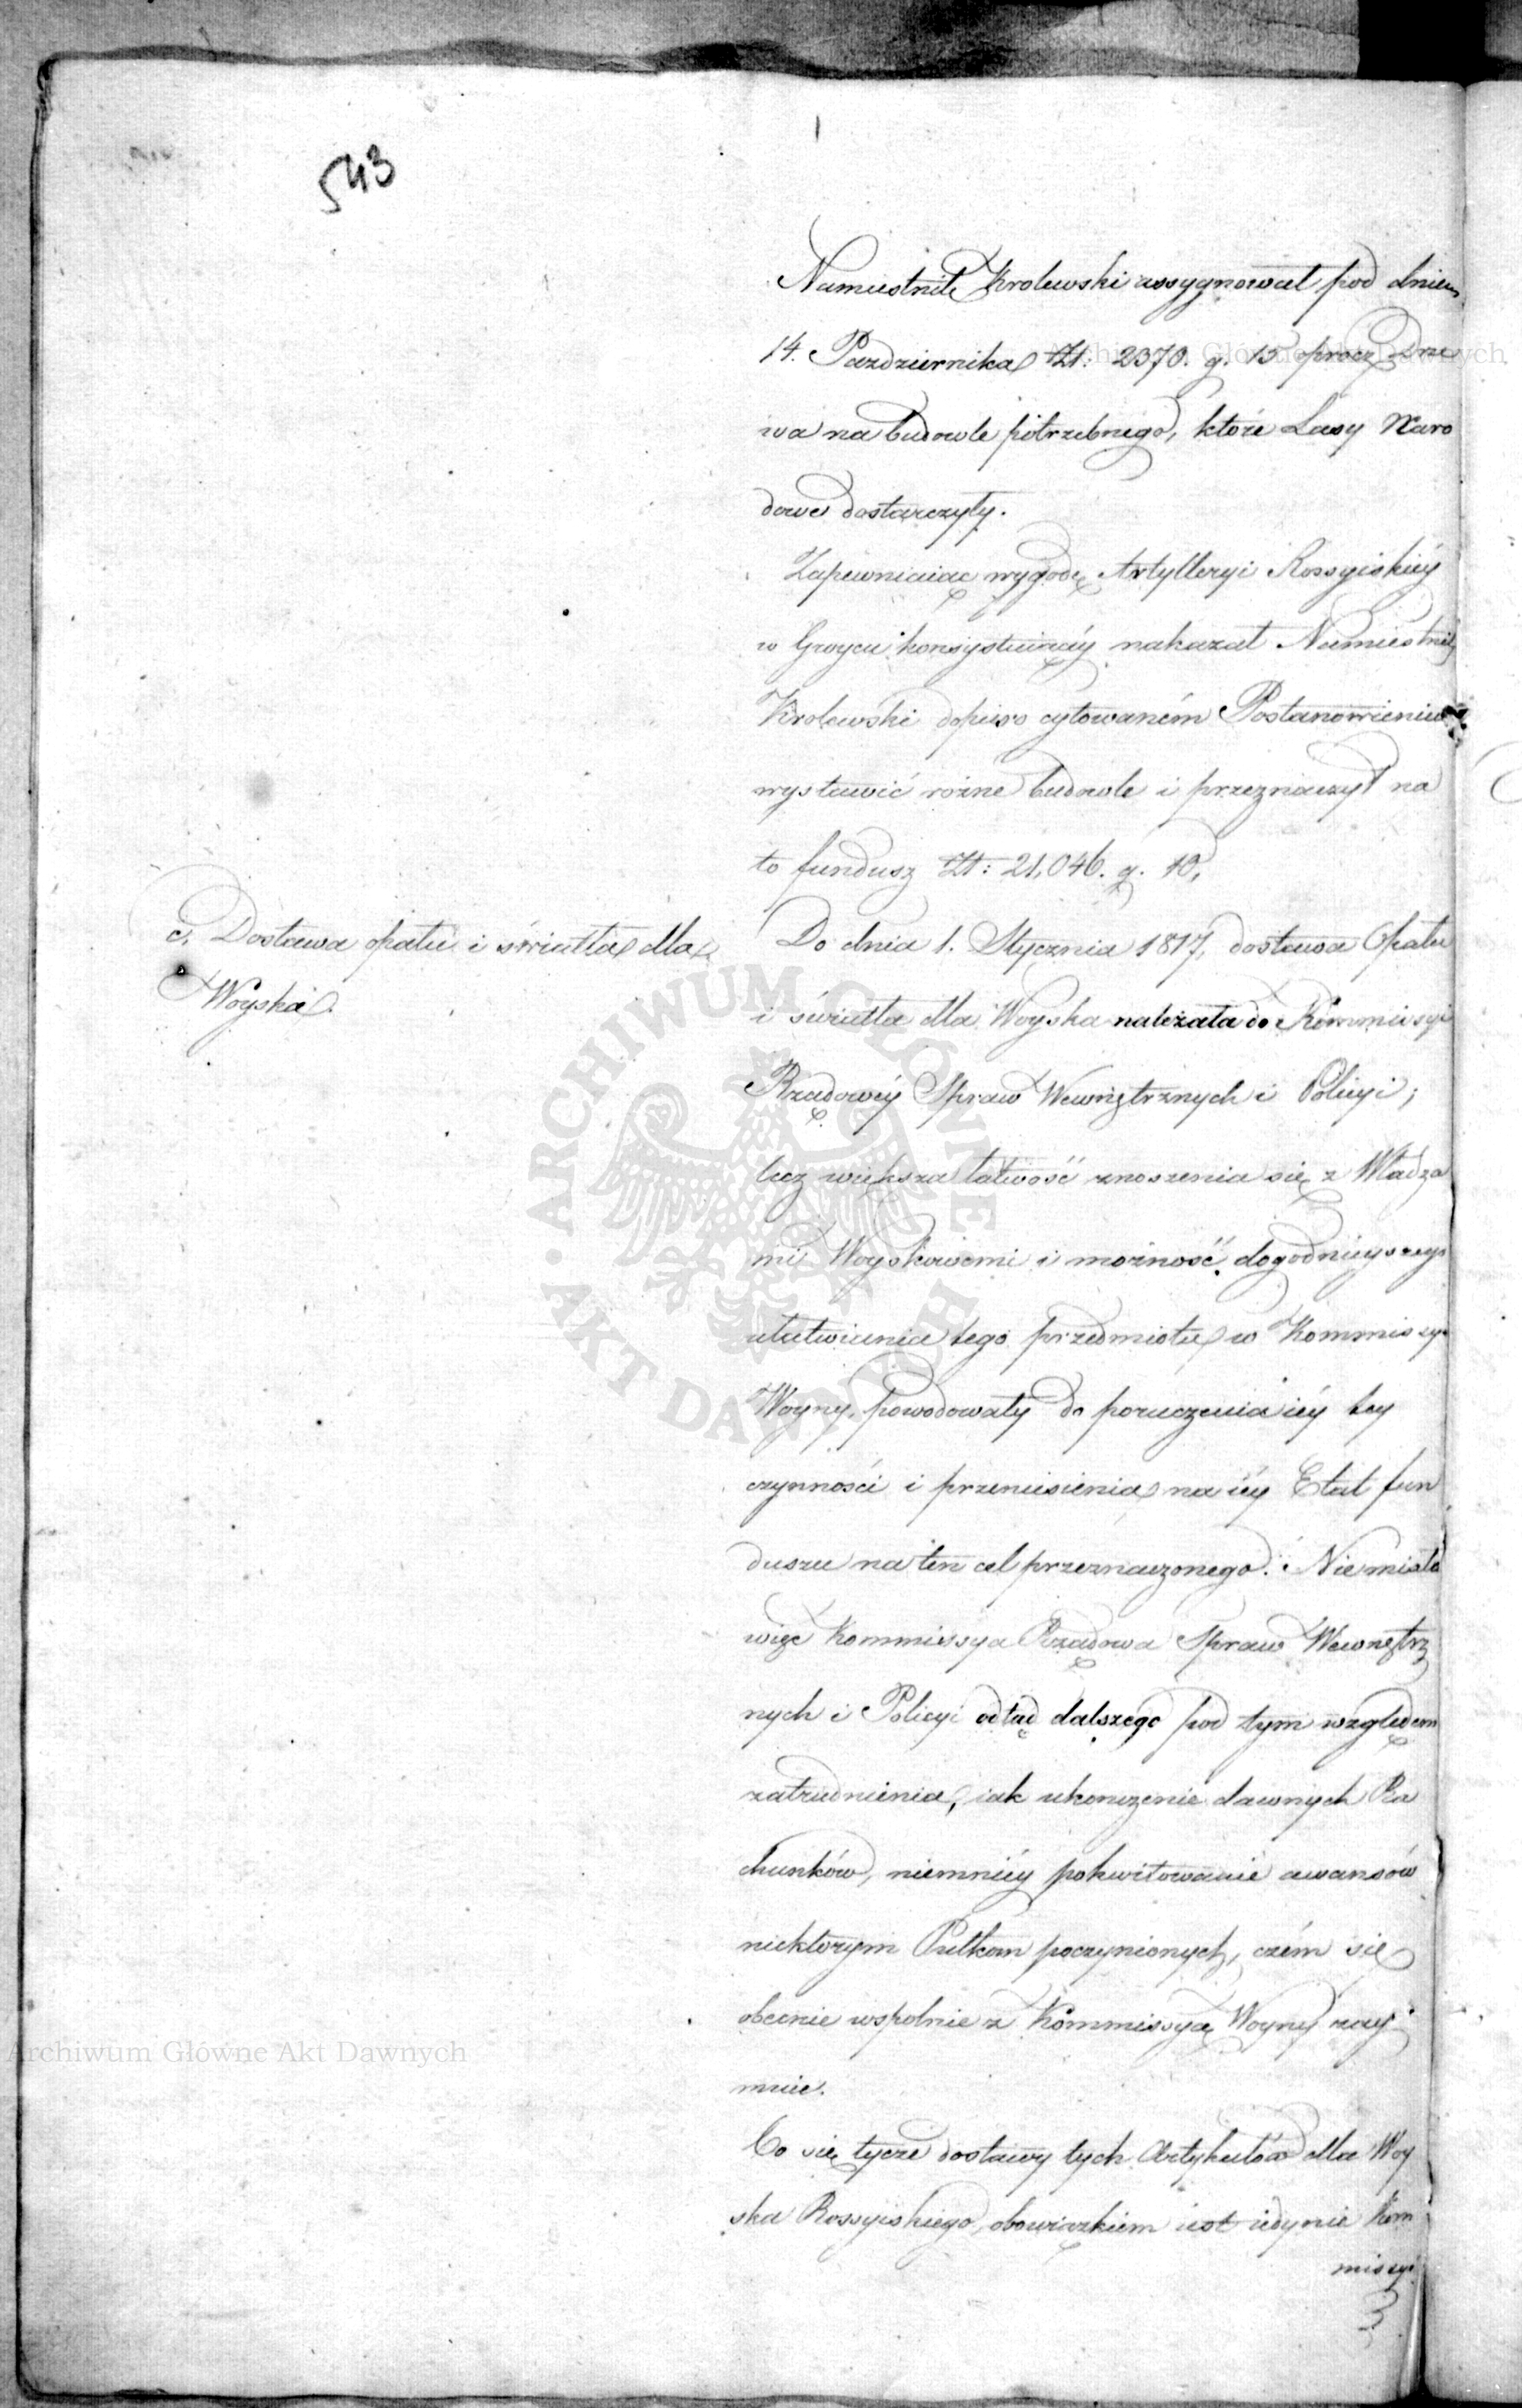 543
Namiestnik Krolewski assygnował pod dniem
14. Pazdziernika Zł: 2370. g. 15 procz Drze
wa na budowle potrzebnego, ktore Lasy Naro
dowe dostarczyły.
Zapewniaiąc wygodę Artylleryi Rossyiskiéy
w Groycu konsystuiącéy nakazał Namiestnik
Krolewski dopiero cytowaném Postanowieniem
wystawić rożne budowle i przeznaczył na
to fundusz Zł: 21,046. g. 10,
c. Dostawa opału i światła dla
Woyska.
Do dnia 1. Stycznia 1817, dostawa Opału
i światła dla Woyska należała do Kommissyi
Rządowéy Spraw Wewnętrznych i Policyi;
lecz większa łatwość znoszenia się z Władza
mi Woyskowemi i możność dogodnieyszego
ułatwienia tego przedmiotu w Kommissyi
Woyny, powodowały do poruczenia iéy tey
czynności i przeniesienia na iéy Etat fun
duszu na ten cel przeznaczonego. Nie miała
więc Kommissya Rządowa Spraw Wewnętrz
nych i Policyi odtąd dalszego pod tym względem
zatrudnienia, iak ukonczenie dawnych Ra
chunków, niemniéy pokwitowanie awansów
niektorym Pułkom poczynionych, czém się
obecnie wspolnie z Kommissyą Woyny zay
muie.
Co się tycze dostawy tych Artykułów dla Woy
ska Rossyiskiego, obowiązkiem iest iedynie Kom
missyi
Archiwum Główne Akt Dawnych
Archiwum Główne Akt Dawnych
ARCHIWUM GŁÓWNE • AKT DAWNYCH •